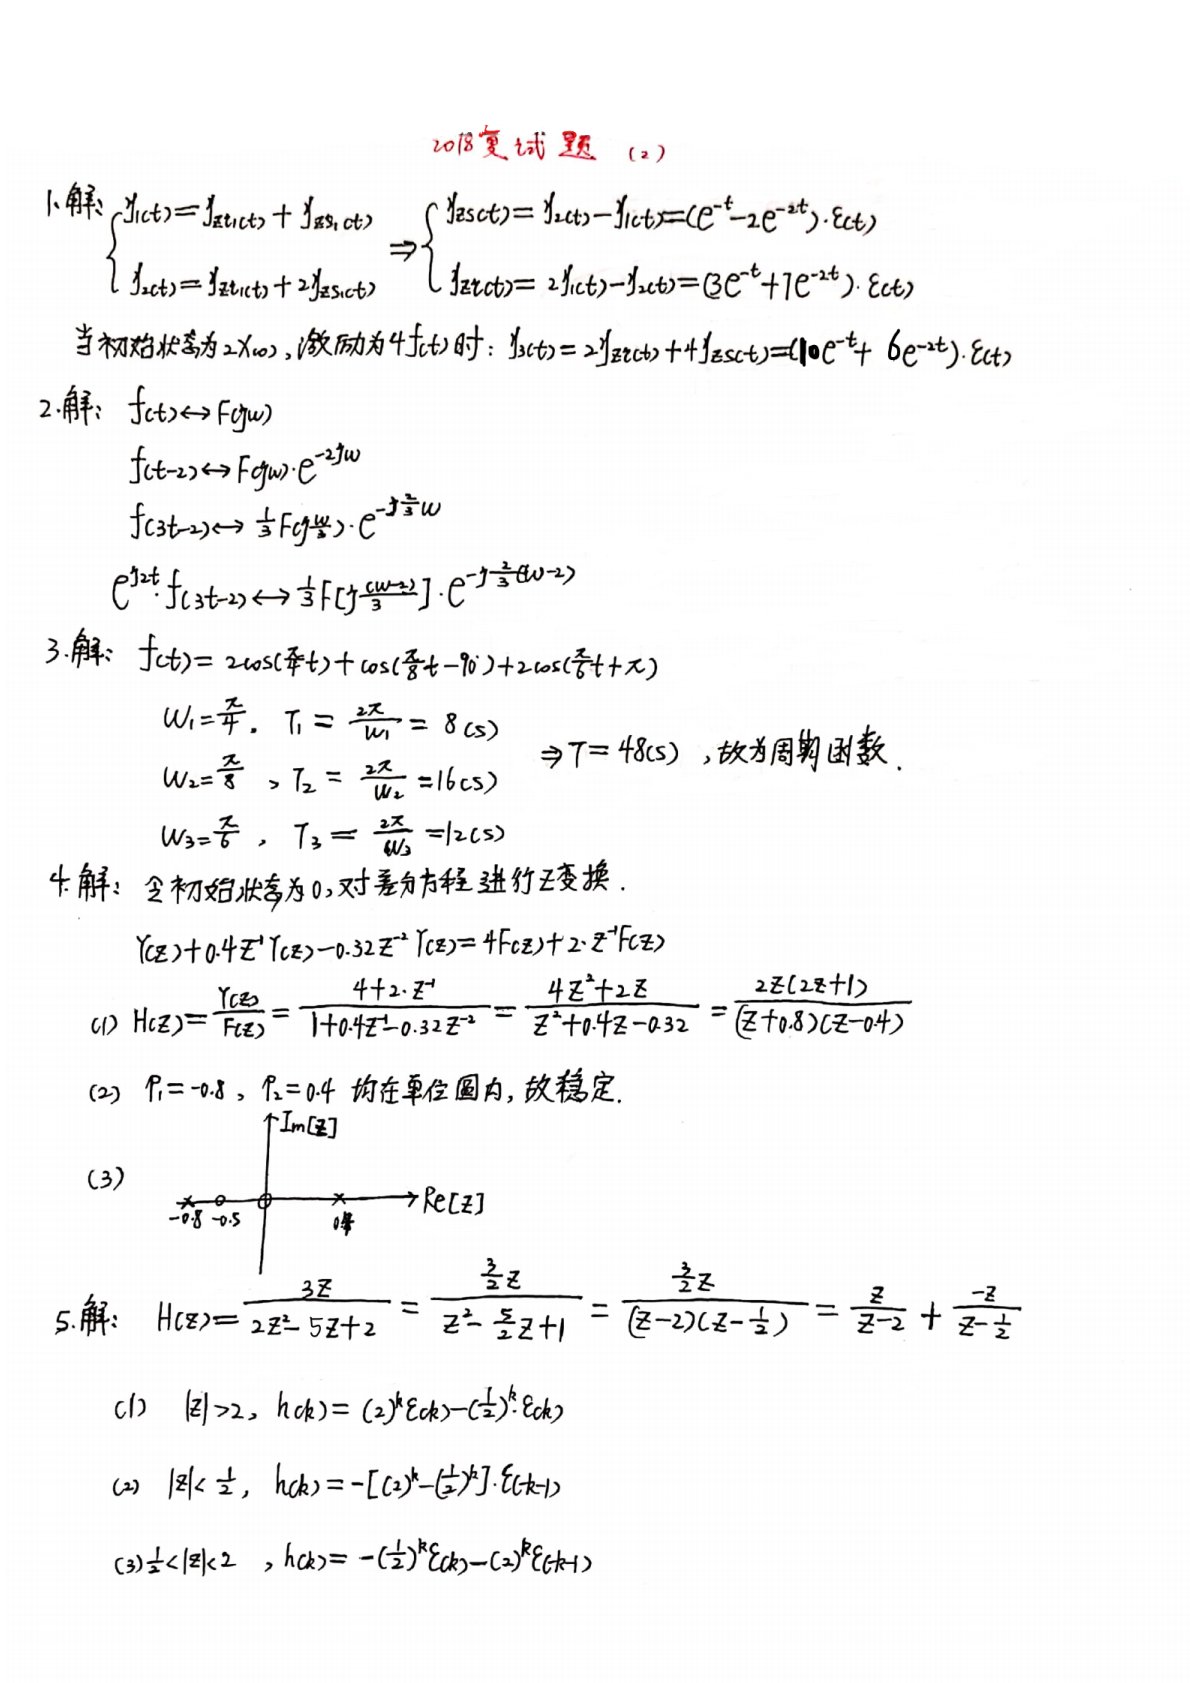 2018复试题 (2)
1.解: { y₁(t)=y_zi₁(t)+y_zs₁(t) ⇒ { y_zs(t)=y₂(t)-y₁(t)=(e^{-t}-2e^{-2t})·ε(t)
y₂(t)=y_zi₁(t)+2y_zs₁(t) y_zi(t)=2y₁(t)-y₂(t)=(3e^{-t}+7e^{-2t})·ε(t)
当初始状态为2X(0),激励为4f(t)时: y₃(t)=2y_zi(t)+4y_zs(t)=(10e^{-t}+6e^{-2t})·ε(t)
2.解: f(t)↔F(jw)
f(t-2)↔F(jw)·e^{-2jw}
f(3t-2)↔1/3 F(j w/3)·e^{-j 2/3 w}
e^{j2t}·f(3t-2)↔1/3 F[j (w-2)/3]·e^{-j 2/3 (w-2)}
3.解: f(t)=2cos(π/4 t)+cos(π/8 t-90°)+2cos(π/6 t+π)
W₁=π/4. T₁=2π/W₁=8(s)
W₂=π/8, T₂=2π/W₂=16(s) ⇒T=48(s),故为周期函数.
W₃=π/6, T₃=2π/W₃=12(s)
4.解: 令初始状态为0,对差分方程进行Z变换.
Y(z)+0.4Z^{-1}Y(z)-0.32Z^{-2}Y(z)=4F(z)+2·Z^{-1}F(z)
(1) H(z)=Y(z)/F(z)=(4+2·Z^{-1})/(1+0.4Z^{-1}-0.32Z^{-2})=(4Z²+2Z)/(Z²+0.4Z-0.32)=2Z(2Z+1)/((Z+0.8)(Z-0.4))
(2) P₁=-0.8, P₂=0.4 均在单位圆内,故稳定.
Im[Z]
(3)
Re[Z]
-0.8 -0.5 0.4
5.解: H(z)=3Z/(2Z²-5Z+2)=(3/2 Z)/(Z²-5/2 Z+1)=(3/2 Z)/((Z-2)(Z-1/2))=Z/(Z-2)+(-Z)/(Z-1/2)
(1) |Z|>2, h(k)=(2)^k ε(k)-(1/2)^k·ε(k)
(2) |Z|<1/2, h(k)=-[(2)^k-(1/2)^k]·ε(-k-1)
(3) 1/2<|Z|<2, h(k)=-(1/2)^k ε(k)-(2)^k ε(-k-1)